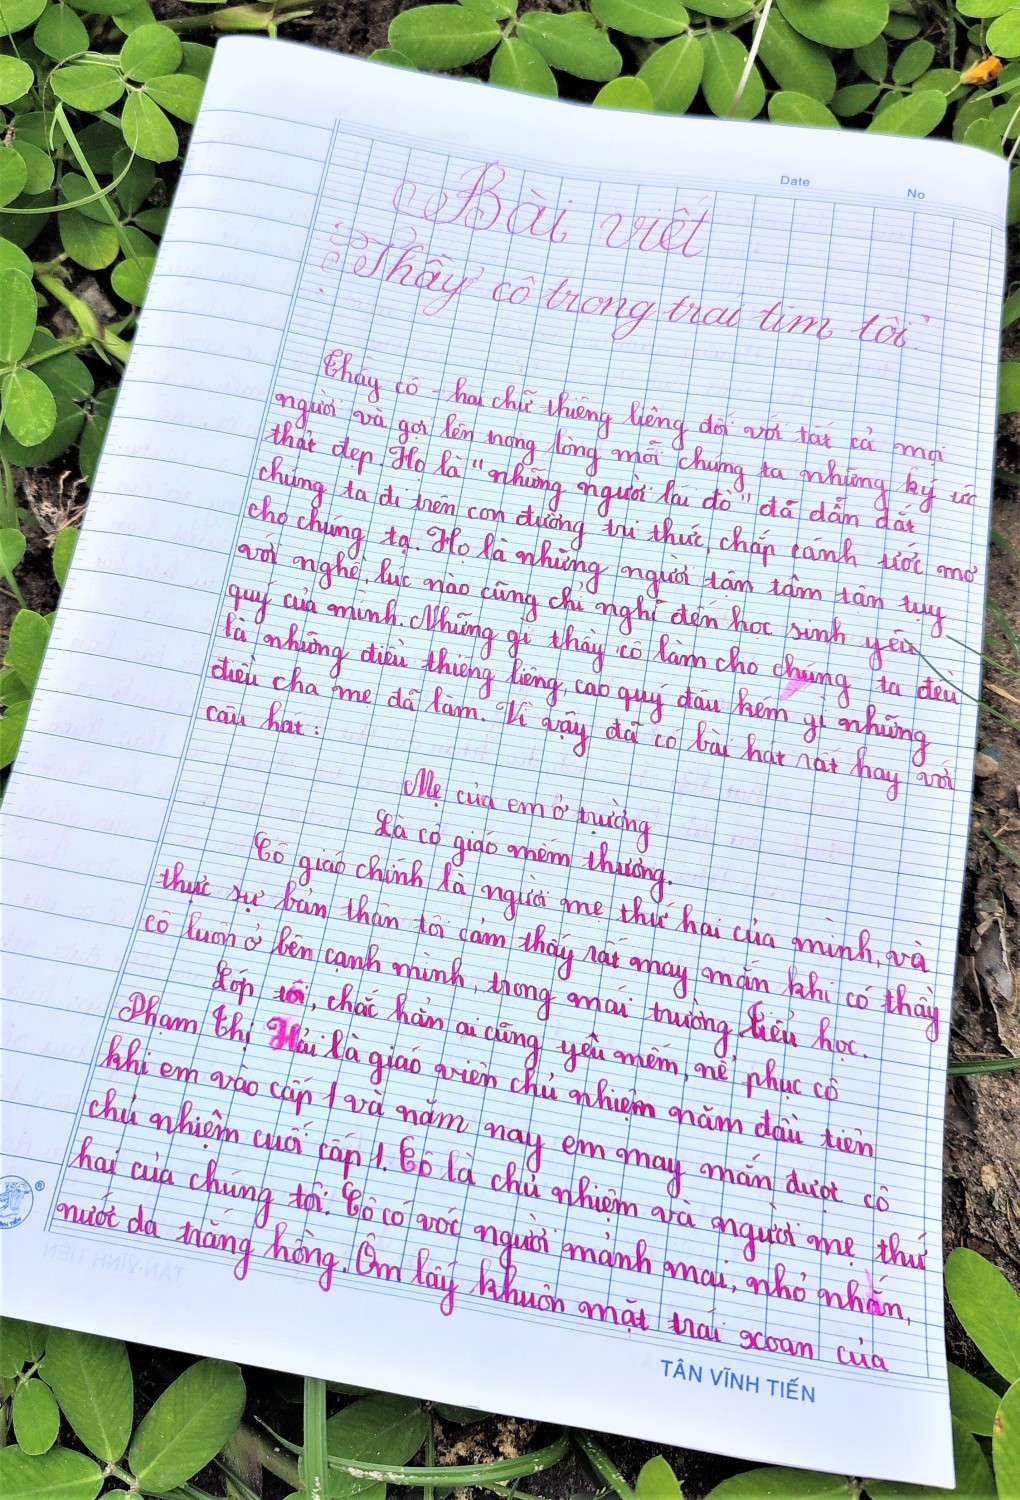 Date No
Bài viết
"Thầy cô trong trái tim tôi"
Thầy cô - hai chữ thiêng liêng đối với tất cả mọi
người và gợi lên trong lòng mỗi chúng ta những ký ức
thật đẹp. Họ là "những người lái đò" đã dẫn dắt
chúng ta đi trên con đường tri thức, chắp cánh ước mơ
cho chúng ta. Họ là những người tận tâm tận tụy
với nghề, lúc nào cũng chỉ nghĩ đến học sinh yêu
quý của mình. Những gì thầy cô làm cho chúng ta đều
là những điều thiêng liêng, cao quý đâu kém gì những
điều cha mẹ đã làm. Vì vậy đã có bài hát rất hay với
câu hát:
Mẹ của em ở trường
Là cô giáo mến thương.
Cô giáo chính là người mẹ thứ hai của mình, và
thực sự bản thân tôi cảm thấy rất may mắn khi có thầy
cô luôn ở bên cạnh mình, trong mái trường tiểu học.
Lớp tôi, chắc hẳn ai cũng yêu mến, nể phục cô
Phạm Thị Hải là giáo viên chủ nhiệm năm đầu tiên
khi em vào cấp 1 và năm nay em may mắn được cô
chủ nhiệm cuối cấp 1. Cô là chủ nhiệm và người mẹ thứ
hai của chúng tôi. Cô có vóc người mảnh mai, nhỏ nhắn,
nước da trắng hồng. Ôm lấy khuôn mặt trái xoan của
TÂN VĨNH TIẾN